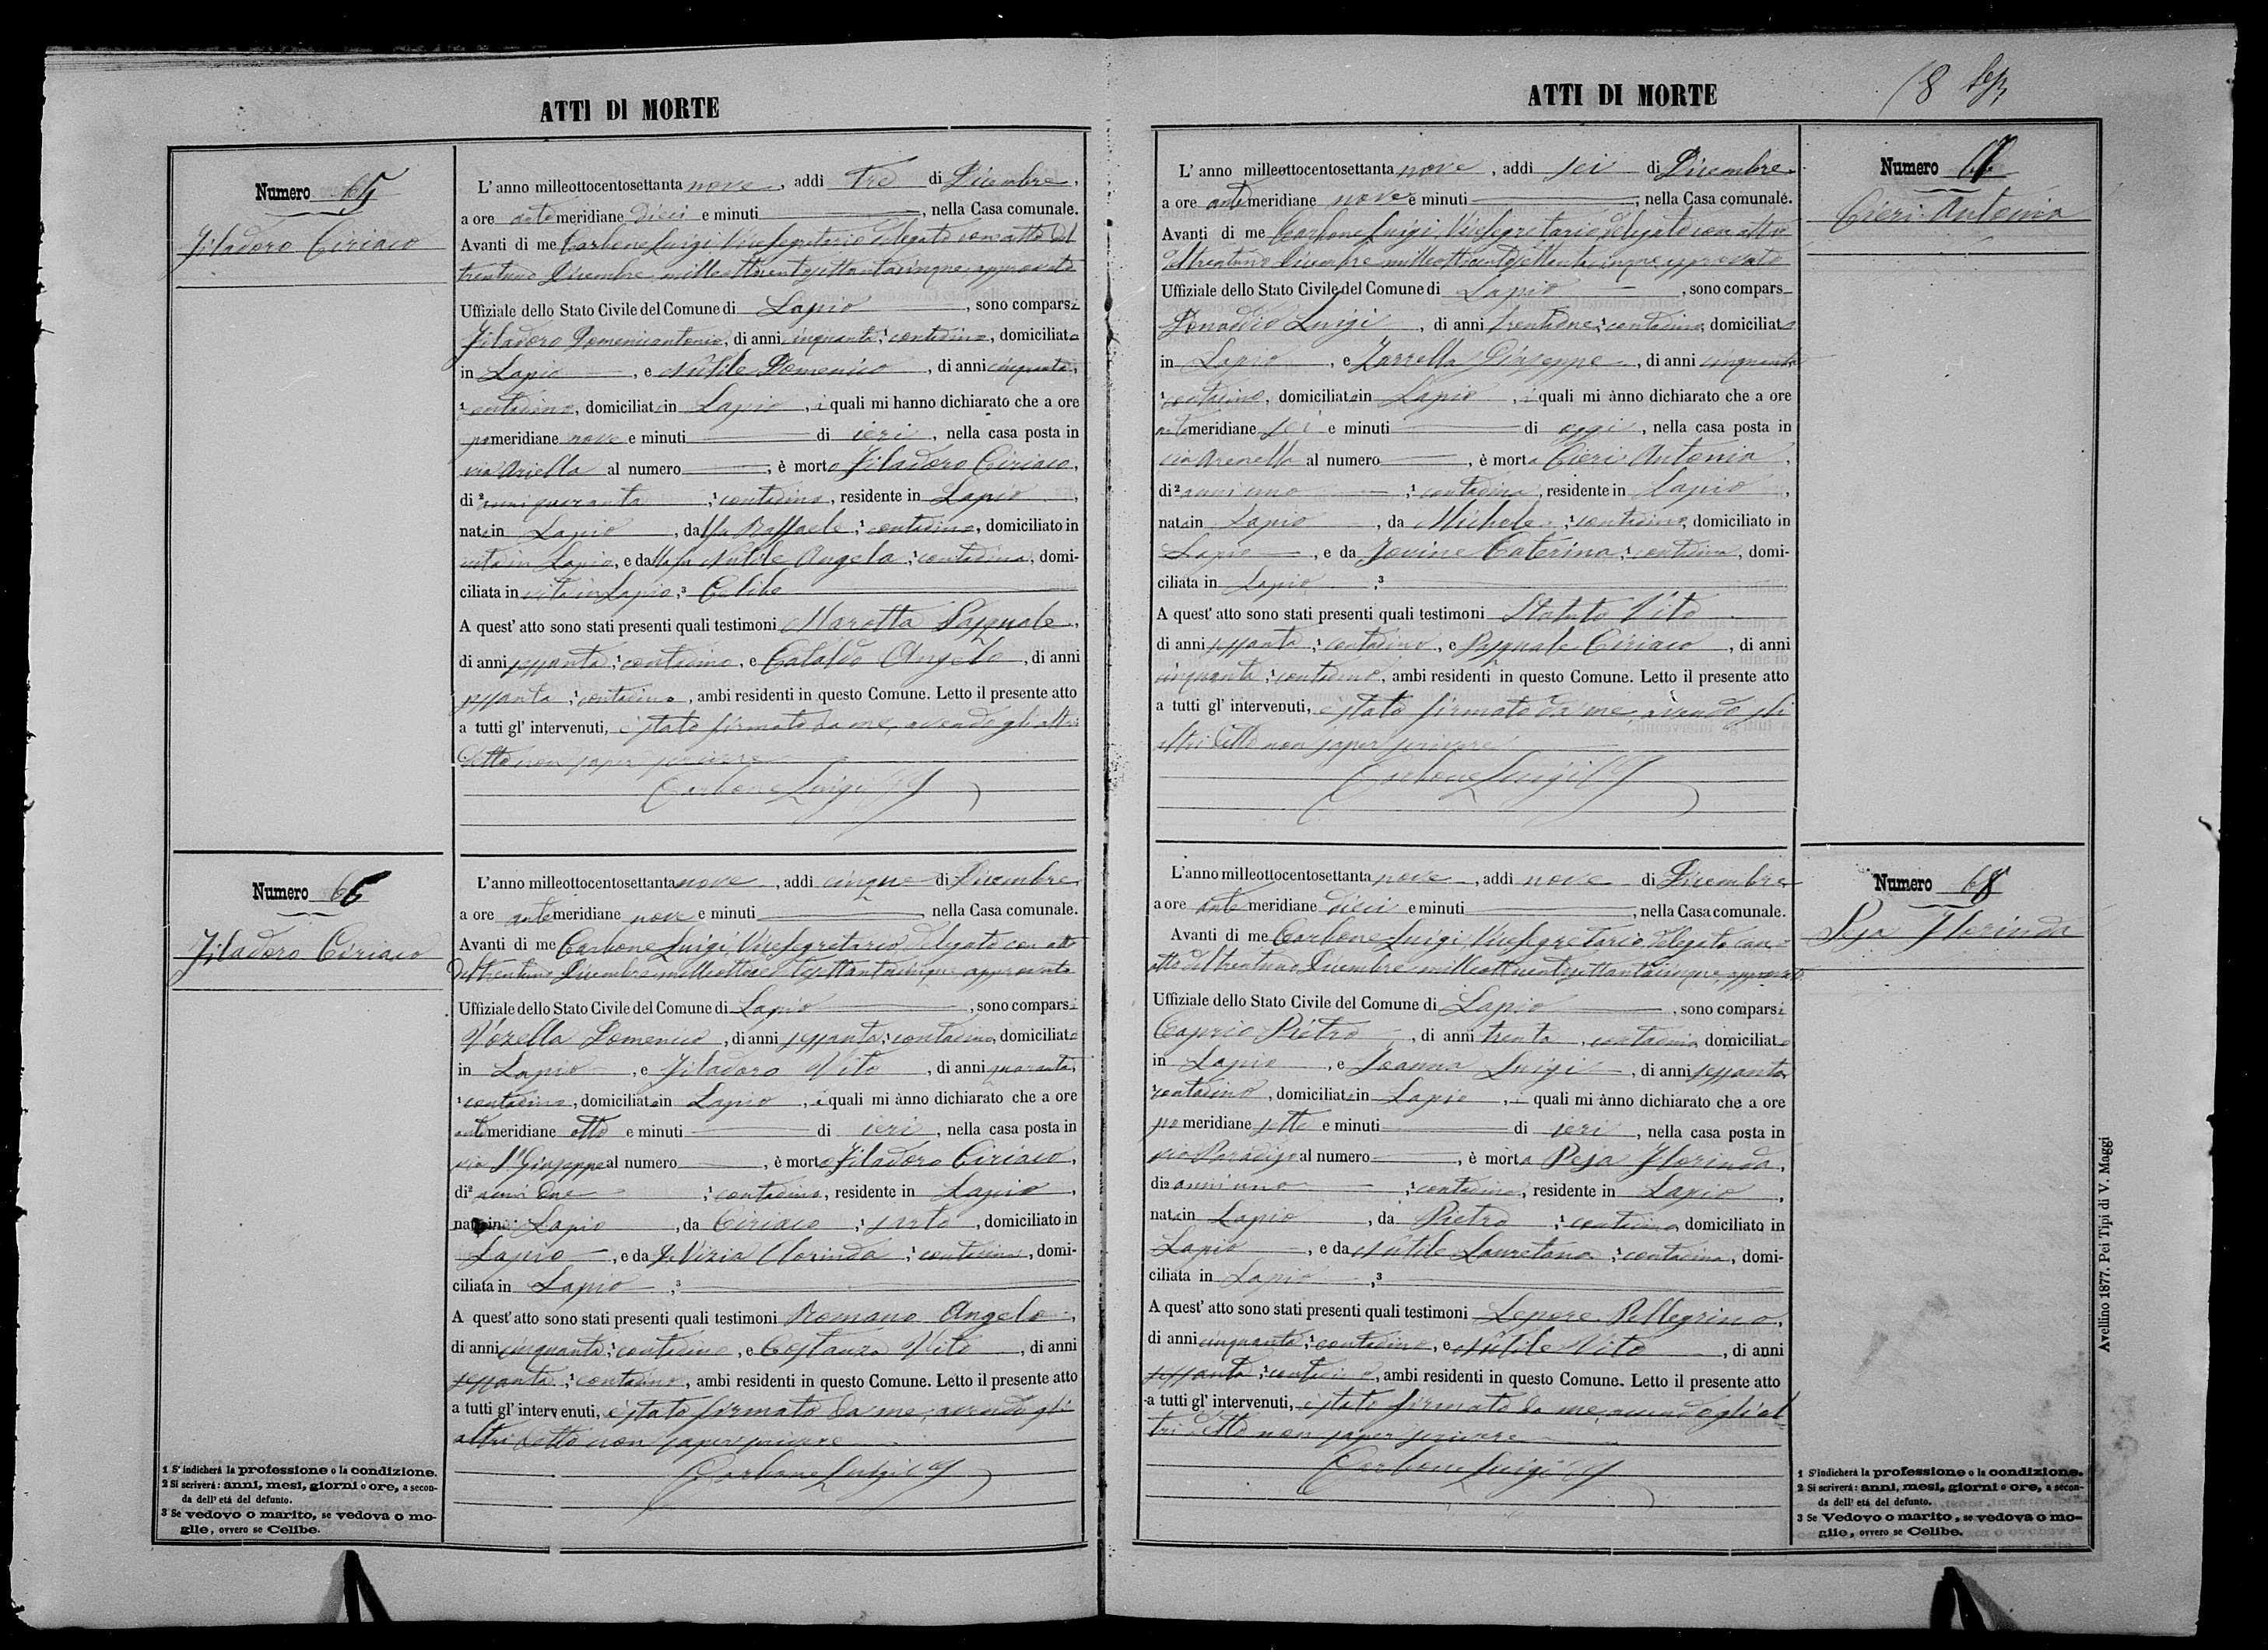 ATTI DI MORTE
Numero 65
Filadoro Ciriaco
L' anno milleottocentosettanta nove, addi tre di Dicembre,
a ore antimeridiane dieci e minuti, nella Casa comunale.
Avanti di me Carbone Luigi, Vicesegretario delegato con atto del
trentuno Dicembre milleottocentosettantacinque, approvato
Uffiziale dello Stato Civile del Comune di Lapio, sono comparsi
Filadoro Domenicantonio, di anni cinquanta, ¹ contadino, domiciliato
in Lapio, e Nutile Domenico, di anni cinquanta,
¹ contadino, domiciliato in Lapio, i quali mi hanno dichiarato che a ore
pomeridiane nove e minuti di ieri, nella casa posta in
via Ariella al numero, è morto Filadoro Ciriaco,
di ² anni quaranta, ¹ contadino, residente in Lapio,
nato in Lapio, dal fu Raffaele, ¹ contadino, domiciliato in
vita in Lapio, e dalla fu Nutile Angela, ¹ contadina, domi-
ciliata in vita in Lapio, ³ Celibe
A quest' atto sono stati presenti quali testimoni Marotta Pasquale,
di anni sessanta, ¹ contadino, e Cataldo Angelo, di anni
sessanta, ¹ contadino, ambi residenti in questo Comune. Letto il presente atto
a tutti gl' intervenuti, è stato firmato da me, avendo gli altri
detto non saper scrivere
Carbone Luigi
Numero 66
Filadoro Ciriaco
L'anno milleottocentosettanta nove, addi cinque di Dicembre
a ore antimeridiane nove e minuti, nella Casa comunale.
Avanti di me Carbone Luigi, Vicesegretario, delegato con atto
del trentuno Dicembre milleottocentosettantacinque, approvato
Uffiziale dello Stato Civile del Comune di Lapio, sono comparsi
Vozella Domenico, di anni sessanta, ¹ contadino, domiciliato
in Lapio, e Filadoro Vito, di anni quaranta,
¹ contadino, domiciliato in Lapio, i quali mi ànno dichiarato che a ore
antimeridiane otto e minuti di ieri, nella casa posta in
via S. Giuseppe al numero, è morto Filadoro Ciriaco,
di ² anni due, ¹ contadino, residente in Lapio,
nato in Lapio, da Ciriaco, ¹ sarto, domiciliato in
Lapio, e da Florinda, ¹ contadina, domi-
ciliata in Lapio, ³
A quest' atto sono stati presenti quali testimoni Romano Angelo,
di anni cinquanta, ¹ contadino, e Costanza Vito, di anni
sessanta, ¹ contadino, ambi residenti in questo Comune. Letto il presente atto
a tutti gl' intervenuti, è stato firmato da me, avendo gli
altri detto non saper scrivere
Carbone Luigi
1 S' indicherà la professione o la condizione.
2 Si scriverà: anni, mesi, giorni o ore, a secon-
da dell' età del defunto.
3 Se vedovo o marito, se vedova o mo-
glie, ovvero se Celibe.
ATTI DI MORTE
18
L' anno milleottocentosettanta nove, addi sei di Dicembre,
a ore antimeridiane nove e minuti, nella Casa comunale.
Avanti di me Carbone Luigi, Vicesegretario, delegato con atto
del trentuno Dicembre milleottocentosettantacinque, approvato
Uffiziale dello Stato Civile del Comune di Lapio, sono compars
Donaddio Luigi, di anni trentadue, ¹ contadino, domiciliato
in Lapio, e Zarrella Giuseppe, di anni cinquanta
¹ contadino, domiciliato in Lapio, i quali mi ànno dichiarato che a ore
antimeridiane sei e minuti di oggi, nella casa posta in
via Arenella al numero, è morta Cieri Antonia,
di ² anni uno, ¹ contadina, residente in Lapio,
nata in Lapio, da Michele, ¹ contadino, domiciliato in
Lapio, e da Iovine Caterina, ¹ contadina, domi-
ciliata in Lapio, ³
A quest' atto sono stati presenti quali testimoni Statuto Vito
di anni sessanta, ¹ contadino, e Pasquale Ciriaco, di anni
cinquanta, ¹ contadino, ambi residenti in questo Comune. Letto il presente atto
a tutti gl' intervenuti, è stato firmato da me, avendo gli
altri detto non saper scrivere
Carbone Luigi
Numero 67
Cieri Antonia
L'anno milleottocentosettanta nove, addi nove di Dicembre
a ore antimeridiane dieci e minuti, nella Casa comunale.
Avanti di me Carbone Luigi, Vicesegretario, delegato con
atto del trentuno Dicembre milleottocentosettantacinque, approvato
Uffiziale dello Stato Civile del Comune di Lapio, sono comparsi
Caprio Pietro, di anni trenta, contadino, domiciliato
in Lapio, e Joanna Luigi, di anni sessanta
¹ contadino, domiciliato in Lapio, i quali mi ànno dichiarato che a ore
pomeridiane sette e minuti di ieri, nella casa posta in
via Paradiso al numero, è morta Pesa Florinda,
di ² anni uno, ¹ contadina, residente in Lapio,
nata in Lapio, da Pietro, ¹ contadino, domiciliato in
Lapio, e da Nutile Lauretana, ¹ contadina, domi-
ciliata in Lapio, ³
A quest' atto sono stati presenti quali testimoni Lepore Pellegrino,
di anni cinquanta, ¹ contadino, e Nutile Vito, di anni
sessanta, ¹ contadino, ambi residenti in questo Comune. Letto il presente atto
a tutti gl' intervenuti, è stato firmato da me, avendo gli al-
tri detto non saper scrivere
Carbone Luigi
Numero 68
Pesa Florinda
1 S'indicherà la professione o la condizione.
2 Si scriverà: anni, mesi, giorni o ore, a secon-
da dell' età del defunto.
3 Se Vedovo o marito, se vedova o mo-
glie, ovvero se Celibe.
Avellino 1877. Pei Tipi di V. Maggi